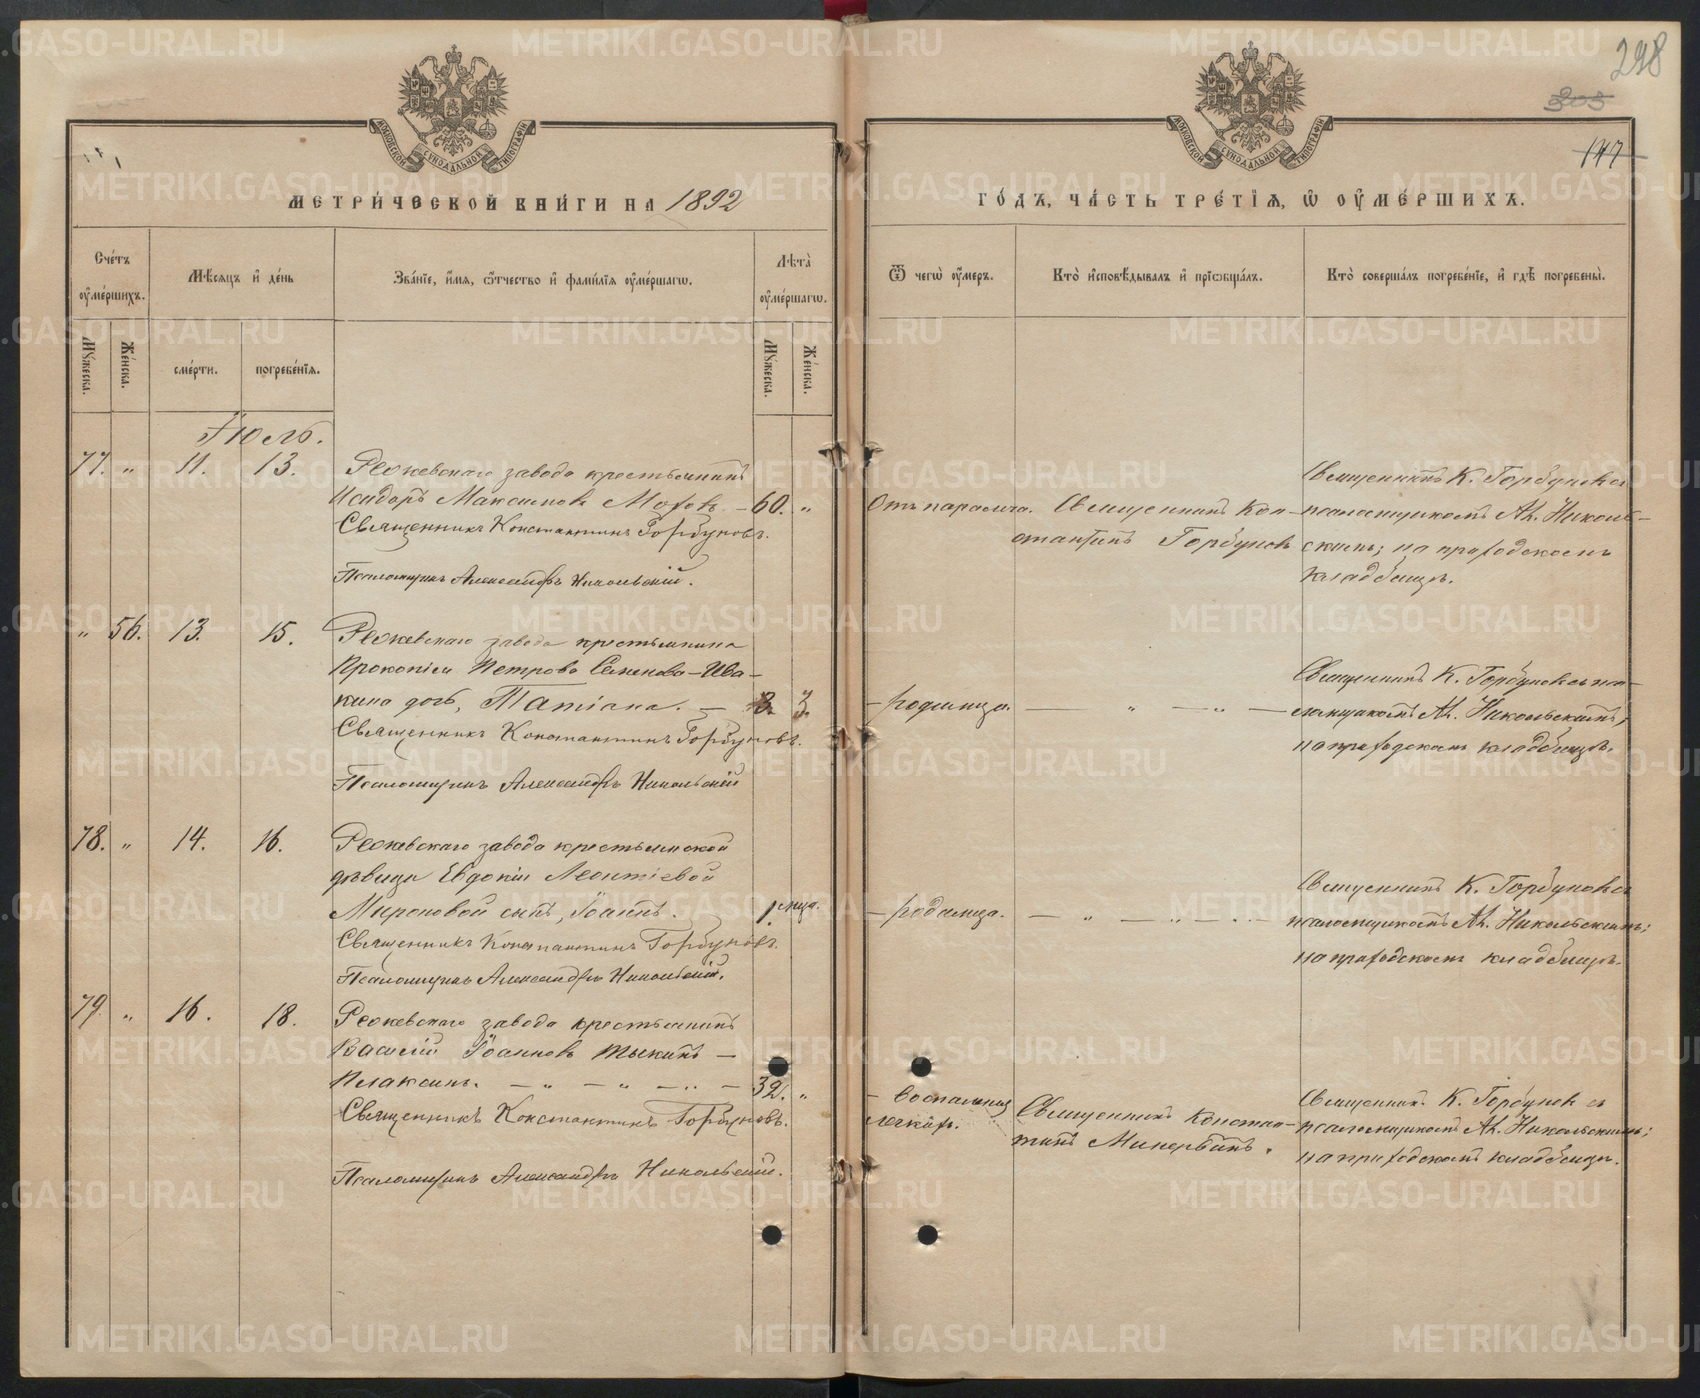 298
305
147
МЕТРИ́ЧЕСКОЙ КНИ́ГИ НА 1892
ГО́ДЪ, ЧА́СТЬ ТРЕ́ТІѦ, Ѡ ОУ҆МЕ́РШИХЪ.
Сче́тъ оу҆ме́ршихъ.
Мѣ́сяцъ и҆ де́нь
Зва́нїе, и҆́мѧ, ѻ҆́тчество и҆ фами́лїѧ оу҆ме́ршагѡ.
Лѣ́та оу҆ме́ршагѡ.
Ѿ чегѡ̀ оу҆́меръ.
Кто̀ и҆сповѣ́дывалъ и҆ прїѡбща́лъ.
Кто̀ соверша́лъ погребе́нїе, и҆ гдѣ̀ погребены̀.
Мꙋ́жеска.
Же́нска.
сме́рти.
погребе́нїѧ.
Мꙋ́жеска.
Же́нска.
Іюль.
77. " 11. 13. Режевскаго завода крестьянинъ
Исидоръ Максимовъ Моховъ. – 60. "
Священникъ Константинъ Горбуновъ.
Псаломщикъ Александръ Никольскій.
Отъ паралича.
Священникъ Кон-
стантинъ Горбуновъ
Священникъ К. Горбуновъ съ
псаломщикомъ Ал. Николь-
скимъ; на приходскомъ
кладбищѣ.
" 56. 13. 15. Режевскаго завода крестьянина
Прокопія Петрова Семенова-Ива-
кина дочь, Татіана. – 3.
Священникъ Константинъ Горбуновъ.
Псаломщикъ Александръ Никольскій
– родимца. — " — " —
Священникъ К. Горбуновъ съ пса-
ломщикомъ Ал. Никольскимъ;
на приходскомъ кладбищѣ.
78. " 14. 16. Режевскаго завода крестьянской
дѣвицы Евдокіи Леонтіевой
Мироновой сынъ, Іоаннъ. 1 мца.
Священникъ Константинъ Горбуновъ.
Псаломщикъ Александръ Никольскій.
– родимца. — " — " — " —
Священникъ К. Горбуновъ съ
псаломщикомъ Ал. Никольскимъ;
на приходскомъ кладбищѣ.
79. " 16. 18. Режевскаго завода крестьянинъ
Василій Іоанновъ Тыкинъ –
Плаксинъ. — " — " — " — 32. "
Священникъ Константинъ Горбуновъ.
Псаломщикъ Александръ Никольскій.
– воспаленія
легкихъ.
Священникъ Констан-
тинъ Минервинъ.
Священникъ К. Горбуновъ съ
псаломщикомъ Ал. Никольскимъ;
на приходскомъ кладбищѣ.
METRIKI.GASO-URAL.RU